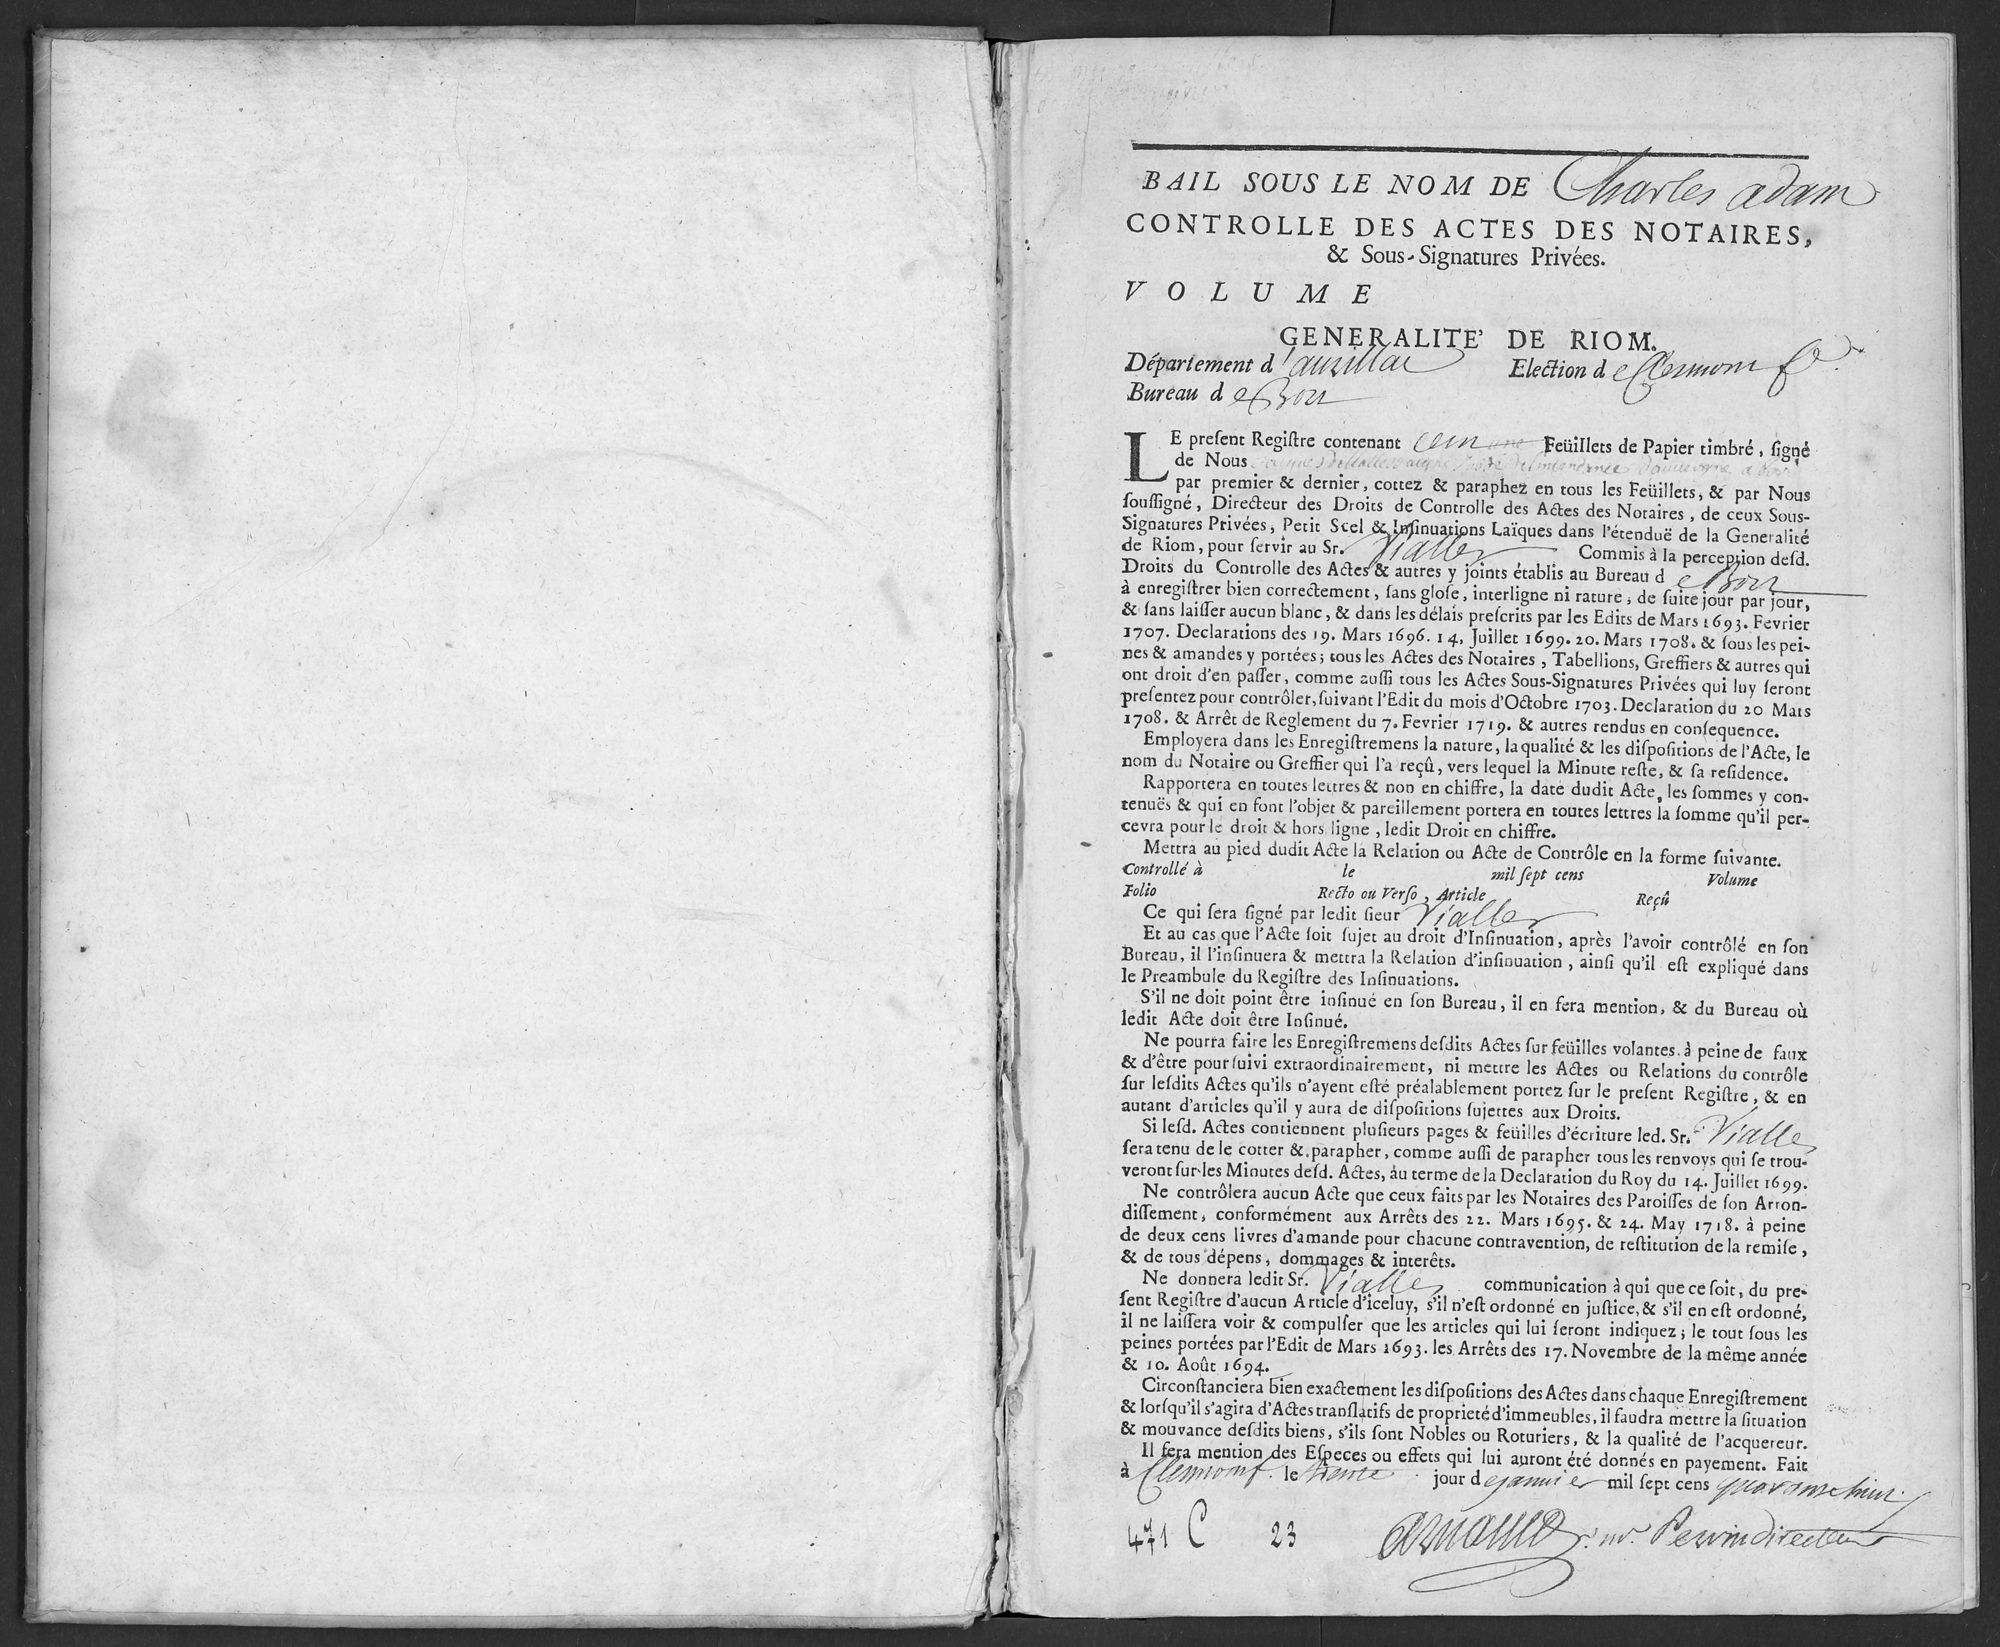 BAIL SOUS LE NOM DE Charles adam
CONTROLLE DES ACTES DES NOTAIRES,
& Sous-Signatures Privées.
VOLUME
GENERALITE' DE RIOM.
Département d'aurillac Election de Clermont
Bureau de Bort
LE preſent Regiſtre contenant cent Feüillets de Papier timbré, ſigné
de Nous
par premier & dernier, cottez & paraphez en tous les Feüillets, & par Nous
ſouſſigné, Directeur des Droits de Controlle des Actes des Notaires, de ceux Sous-
Signatures Privées, Petit Scel & Inſinuations Laïques dans l'étenduë de la Generalité
de Riom, pour ſervir au Sr. Vialler Commis à la perception deſd.
Droits du Controlle des Actes & autres y joints établis au Bureau de Bort
à enregiſtrer bien correctement, ſans gloſe, interligne ni rature, de ſuite jour par jour,
& ſans laiſſer aucun blanc, & dans les délais preſcrits par les Edits de Mars 1693. Fevrier
1707. Declarations des 19. Mars 1696. 14. Juillet 1699. 20. Mars 1708. & ſous les pei-
nes & amandes y portées; tous les Actes des Notaires, Tabellions, Greffiers & autres qui
ont droit d'en paſſer, comme auſſi tous les Actes Sous-Signatures Privées qui luy ſeront
preſentez pour contrôler, ſuivant l'Edit du mois d'Octobre 1703. Declaration du 20 Mars
1708. & Arrêt de Reglement du 7. Fevrier 1719. & autres rendus en conſequence.
Employera dans les Enregiſtremens la nature, la qualité & les diſpoſitions de l'Acte, le
nom du Notaire ou Greffier qui l'a reçû, vers lequel la Minute reſte, & ſa reſidence.
Rapportera en toutes lettres & non en chiffre, la date dudit Acte, les ſommes y con-
tenuës & qui en font l'objet & pareillement portera en toutes lettres la ſomme qu'il per-
cevra pour le droit & hors ligne, ledit Droit en chiffre.
Mettra au pied dudit Acte la Relation ou Acte de Contrôle en la forme ſuivante.
Controllé à le mil ſept cens Volume
Folio Recto ou Verſo, Article Reçû
Ce qui ſera ſigné par ledit ſieur Vialler
Et au cas que l'Acte ſoit ſujet au droit d'Inſinuation, après l'avoir contrôlé en ſon
Bureau, il l'inſinuera & mettra la Relation d'inſinuation, ainſi qu'il eſt expliqué dans
le Preambule du Regiſtre des Inſinuations.
S'il ne doit point être inſinué en ſon Bureau, il en fera mention, & du Bureau où
ledit Acte doit être Inſinué.
Ne pourra faire les Enregiſtremens deſdits Actes ſur feüilles volantes à peine de faux
& d'être pourſuivi extraordinairement, ni mettre les Actes ou Relations du contrôle
ſur leſdits Actes qu'ils n'ayent eſté préalablement portez ſur le preſent Regiſtre, & en
autant d'articles qu'il y aura de diſpoſitions ſujettes aux Droits.
Si leſd. Actes contiennent pluſieurs pages & feüilles d'écriture led. Sr. Vialler
ſera tenu de le cotter & parapher, comme auſſi de parapher tous les renvoys qui ſe trou-
veront ſur les Minutes deſd. Actes, au terme de la Declaration du Roy du 14. Juillet 1699.
Ne contrôlera aucun Acte que ceux faits par les Notaires des Paroiſſes de ſon Arron-
diſſement, conformément aux Arrêts des 22. Mars 1695. & 24. May 1718. à peine
de deux cens livres d'amande pour chacune contravention, de reſtitution de la remiſe,
& de tous dépens, dommages & interêts.
Ne donnera ledit Sr. Vialler communication à qui que ce ſoit, du pre-
ſent Regiſtre d'aucun Article d'iceluy, s'il n'eſt ordonné en juſtice, & s'il en eſt ordonné,
il ne laiſſera voir & compulſer que les articles qui lui ſeront indiquez; le tout ſous les
peines portées par l'Edit de Mars 1693. les Arrêts des 17. Novembre de la même année
& 10. Août 1694.
Circonſtanciera bien exactement les diſpoſitions des Actes dans chaque Enregiſtrement
& lorſqu'il s'agira d'Actes tranſlatifs de proprieté d'immeubles, il faudra mettre la ſituation
& mouvance deſdits biens, s'ils ſont Nobles ou Roturiers, & la qualité de l'acquereur.
Il fera mention des Eſpeces ou effets qui lui auront été donnés en payement. Fait
à Clermont le trente jour de janvier mil ſept cens quarante huit
471 C 23